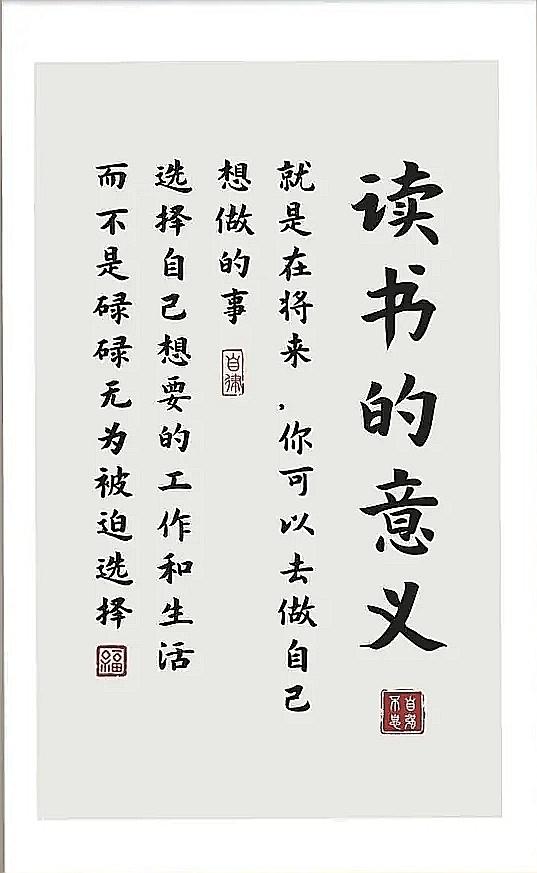 读书的意义
自强不息
就是在将来，你可以去做自己
想做的事
自律
选择自己想要的工作和生活
而不是碌碌无为被迫选择
福